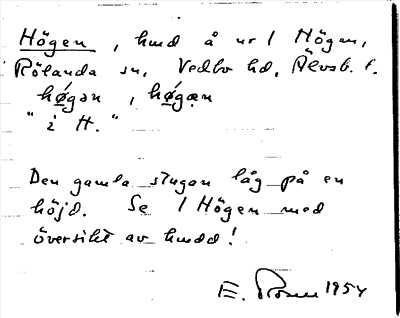 Högen, hmd å nr 1 Högen,
Rölanda sn, Vedbo hd, Älvsb. l.
hǿgən, hǿgæn
"i H."
Den gamla stugan låg på en
höjd. Se 1 Högen med
översikt av hmdd!
E. 1954